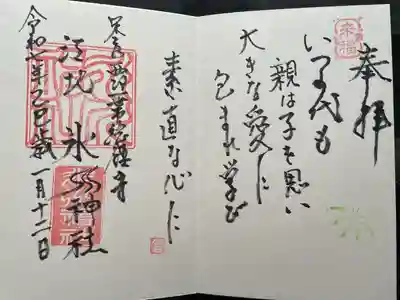 来福
奉拝
いつの代も
親は子を思い
大きな愛に
包まれ学び
素直な心に
江北 氷川神社
令和七年乙巳歳一月十二日